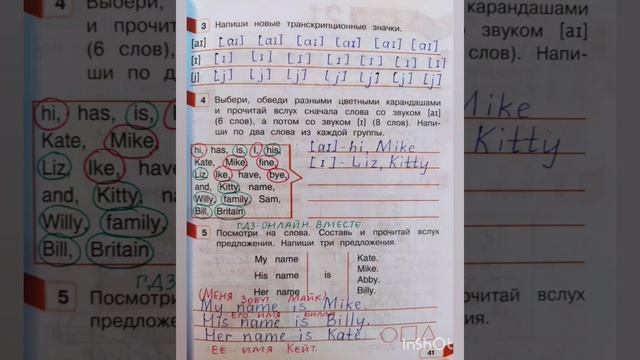 3 Напиши новые транскрипционные значки.
[aɪ] [aɪ] [aɪ] [aɪ] [aɪ] [aɪ] [aɪ]
[ɪ] [ɪ] [ɪ] [ɪ] [ɪ] [ɪ] [ɪ] [ɪ]
[j] [j] [j] [j] [j] [j] [j] [j]
4 Выбери, обведи разными цветными карандашами
и прочитай вслух сначала слова со звуком [aɪ]
(6 слов), а потом со звуком [ɪ] (8 слов). Напи-
ши по два слова из каждой группы.
hi, has, is, I, his,
Kate, Mike, fine,
Liz, Ike, have, bye,
and, Kitty, name,
Willy, family, Sam,
Bill, Britain
[aɪ] - hi, Mike
[ɪ] - Liz, Kitty
ГДЗ ОНЛАЙН ВМЕСТЕ
5 Посмотри на слова. Составь и прочитай вслух
предложения. Напиши три предложения.
My name
His name
Her name
is
Kate.
Mike.
Abby.
Billy.
(Меня зовут Майк)
My name is Mike.
Его имя Билли.
His name is Billy.
Her name is Kate.
Её имя Кейт.
41
4 Выбери,
(6 слов),
ши по два
hi, has, is,
Kate, Mike
Liz, Ike, have
and, Kitty,
Willy, family,
Bill, Britain
ГДЗ
5 Посмотри
предложе
карандашами
звуком [aɪ]
слов). Напи-
Mike
Kitty
очитай вслух
InShot